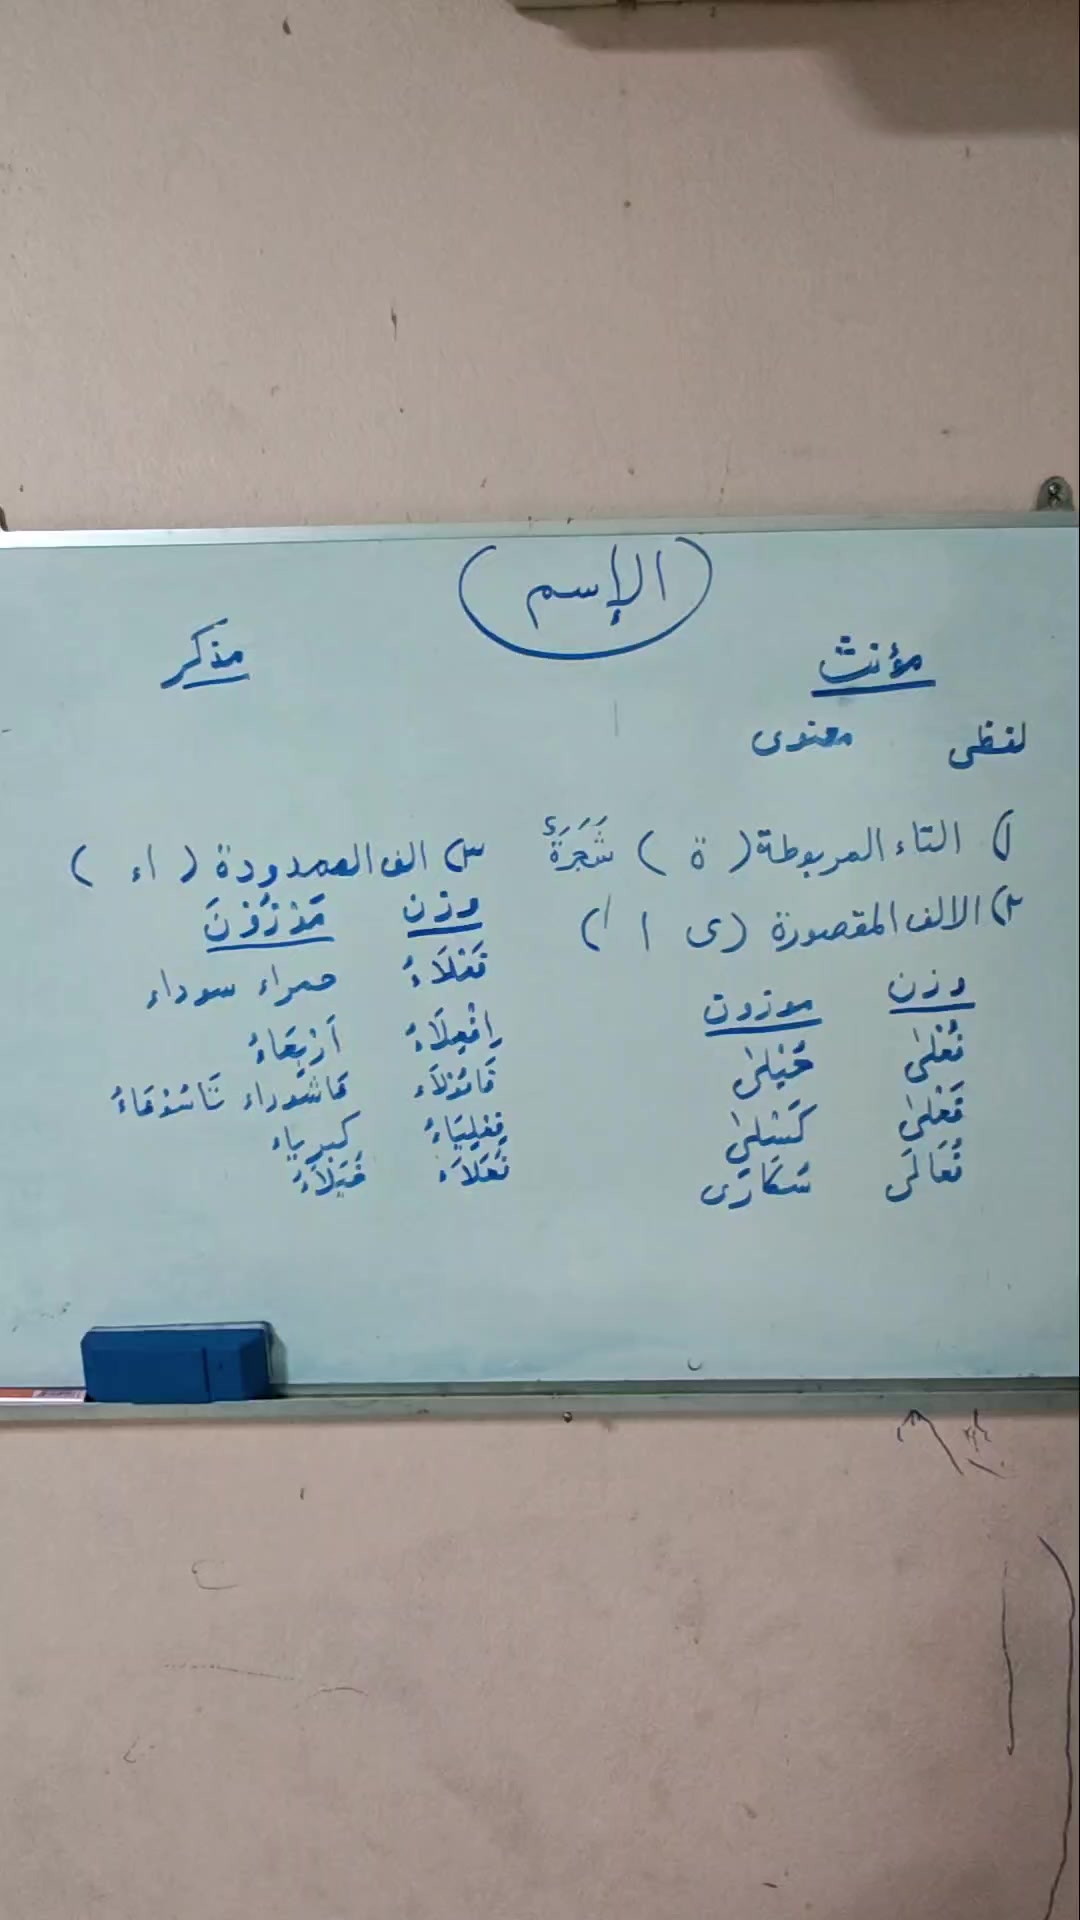 (الإسم)
مؤنث مذكر
لفظى معنوى
١) التاء المربوطة ( ة ) شَجَرَةٌ
٢) الالف المقصورة (ى ا)
وزن موزون
فُعْلىٰ حُبْلىٰ
فَعْلىٰ كَسْلىٰ
فُعَالَى سُكَارَى
٣) الف الممدودة ( اء )
وزن مَوْزُوْنَ
فَعْلَاءُ حمراء سوداء
اِفْعِلَاءُ اَرْبِعَاءُ
فَاعُوْلَاء عَاشوراء تَاسُوْعَاءُ
فِعْلِيَاءُ كبرياء
فُعَلَاَء خُيَلَاَءُ